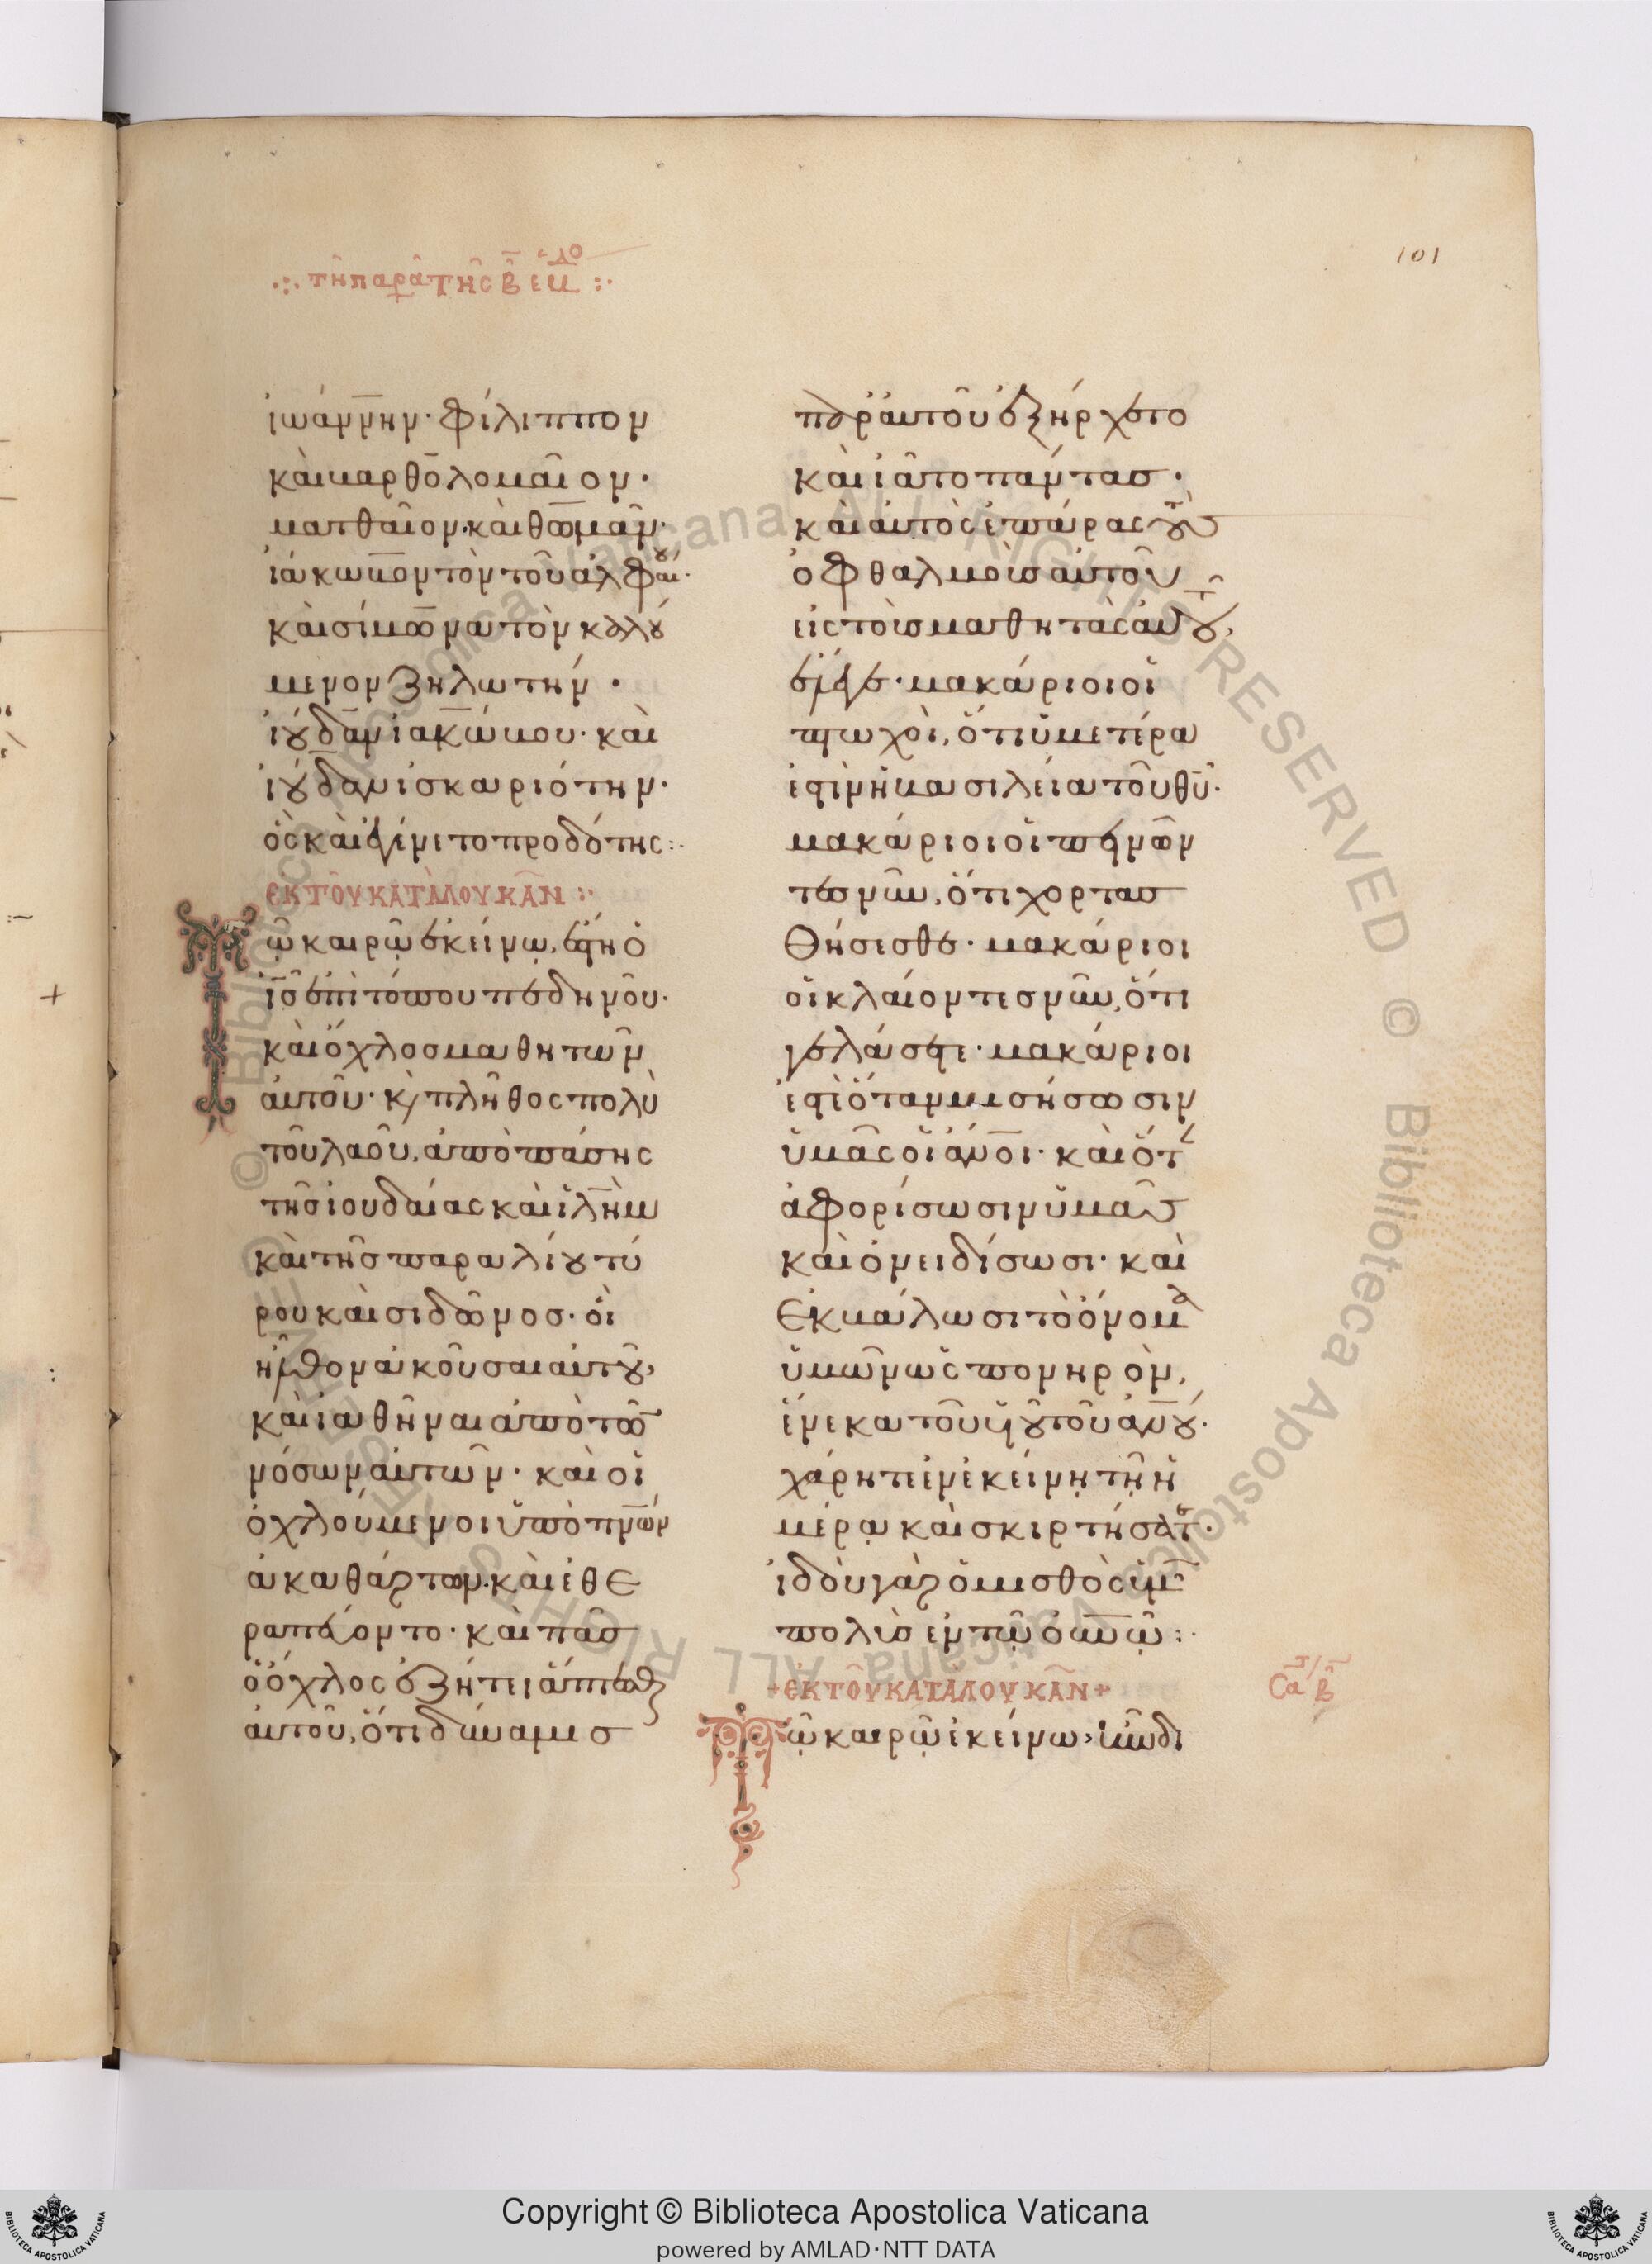 101
τῆ παρα τῆς β̅ ἑβδο
ἰωάννην· φίλιππον
καὶ βαρθολομαῖον·
ματθαῖον· καὶ θωμᾶν·
ἰάκωβον τὸν τοῦ ἀλφαίου·
καὶ σίμωνα τὸν καλού
μενον ζηλωτήν·
ἰούδαν ἰακώβου· καὶ
ἰούδαν ἰσκαριότην·
ὃς καὶ ἐγένετο προδότης:·
ΕΚ ΤΟΥ ΚΑΤΑ ΛΟΥΚΑΝ:·
Τῶ καιρῶ ἐκείνω, ἔστη ὁ
ι̅ς̅ ἐπὶ τόπου πεδηνοῦ·
καὶ ὄχλος μαθητῶν
αὐτοῦ· κ̀ πλῆθος πολὺ
τοῦ λαοῦ, ἀπὸ πάσης
τῆς ἰουδαίας καὶ ι̅λ̅η̅μ̅
καὶ τῆς παραλίου τύ
ρου καὶ σιδῶνος· οἳ
ἦλθον ἀκοῦσαι αὐτοῦ,
καὶ ἰαθῆναι ἀπὸ τῶν
νόσων αὐτῶν· καὶ οἱ
ὀχλούμενοι ὑπὸ π̅ν̅ω̅ν̅
ἀκαθάρτων· καὶ ἐθε
ραπεύοντο· καὶ πᾶς
ὁ ὄχλος ἐζήτει ἅπτεσθαι
αὐτοῦ, ὅτι δύναμις
παρ' αὐτοῦ ἐξήρχετο
καὶ ἰᾶτο πάντας·
καὶ αὐτὸς ἐπάρας τοὺς
ὀφθαλμοὺς αὐτοῦ
εἰς τοὺς μαθητὰς αὐτοῦ,
ἔλεγε· μακάριοι οἱ
πτωχοὶ, ὅτι ὑμετέρα
ἐστὶν ἡ βασιλεία τοῦ θ̅υ̅·
μακάριοι οἱ πεινῶν
τες νῦν, ὅτι χορτασ
θήσεσθε· μακάριοι
οἱ κλαίοντες νῦν, ὅτι
γελάσετε· μακάριοι
ἐστὲ ὅταν μισήσωσιν
ὑμᾶς οἱ α̅ν̅ο̅ι̅· καὶ ὅταν
ἀφορίσωσιν ὑμᾶς
καὶ ὀνειδίσωσι· καὶ
ἐκβάλωσι τὸ ὄνομα
ὑμῶν ὡς πονηρὸν,
ἕνεκα τοῦ υ̅ἱ̅ου τοῦ α̅ν̅ου·
χάρητε ἐν ἐκείνη τῆ ἡ
μέρα καὶ σκιρτήσατε·
ἰδοὺ γὰρ ὁ μισθὸς ὑμῶν
πολὺς ἐν τῶ ο̅υ̅ν̅ῶ̅:·
+ΕΚ ΤΟΥ ΚΑΤΑ ΛΟΥΚΑΝ+
Τῶ καιρῶ ἐκείνω,
© Biblioteca Apostolica Vaticana ALL RIGHTS RESERVED
Copyright © Biblioteca Apostolica Vaticana
powered by AMLAD·NTT DATA
BIBLIOTECA APOSTOLICA VATICANA
BIBLIOTECA APOSTOLICA VATICANA